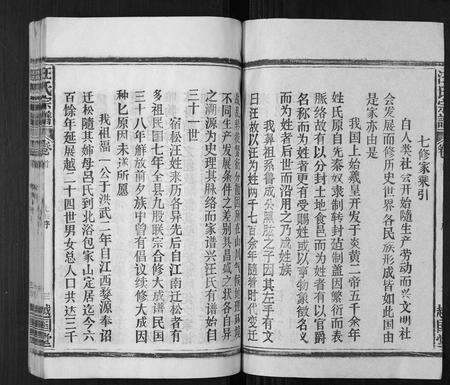 七修家乘引
自人类社会开始随生产劳动而兴文明社
会发展而修历史世界各民族形成皆如此国由
是家亦由是
我国上始羲皇开发于炎黄二帝五千余年
姓氏原自先秦奴隶制转封范制盖因繁衍而表
脉络故有以分封土地食邑而为姓者有以官爵
名称而为姓者更有受赐姓或以事物象徵名义
而为姓者后世而沿用之乃成姓族
我鼻祖系鲁成公黑肱之子因其左手有文
曰汪故以汪为姓两千七百余年随着时代变迁
不同生产发展条件之差别其昌盛之状各自异
之溯源为史理其脉络而家谱兴汪氏有谱始自
三十一世
宿松汪姓来历各异先后自江南迁松者有
多祖民国七年全县九股联宗合修大成谱民国
三十八年解放前夕族中曾有倡议续修大成因
种匕原因未遂所愿
我祖福一公于洪武二年自江西婺源奉诏
迁松随其姊母吕氏到北浴包家山定居迄今六
百余年延展越二十四世男女总人口共达三千
汪氏宗谱
越国堂